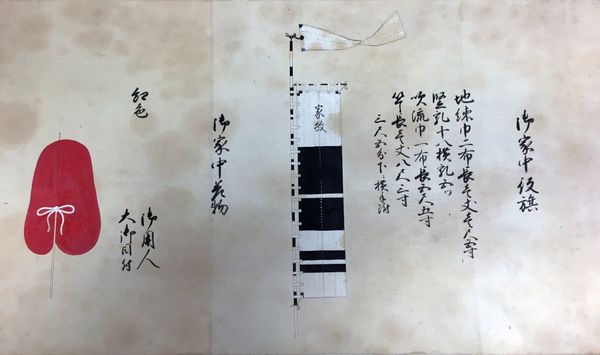 御家中紋旗
地練巾一布長壱丈壱尺五寸
竪乳十八横乳五ツ
吹流巾一布長五尺五寸
竿長壱丈八尺三寸
家紋
御家中差物
紅色
御用人
大御目付